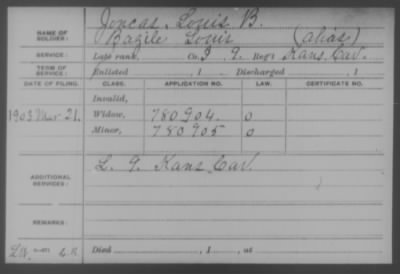 NAME OF SOLDIER: Joncas, Louis B.
Bazile Louis (alias)
SERVICE: Late rank, Co. I 9, Reg't Kans. Cav.
TERM OF SERVICE: Enlisted , 1 Discharged , 1
DATE OF FILING. CLASS. APPLICATION NO. LAW. CERTIFICATE NO.
Invalid,
1903 Mar 21. Widow, 780904. O
Minor, 780905 O
ADDITIONAL SERVICES: L. 9. Kans Cav.
REMARKS:
Died , 1 , at